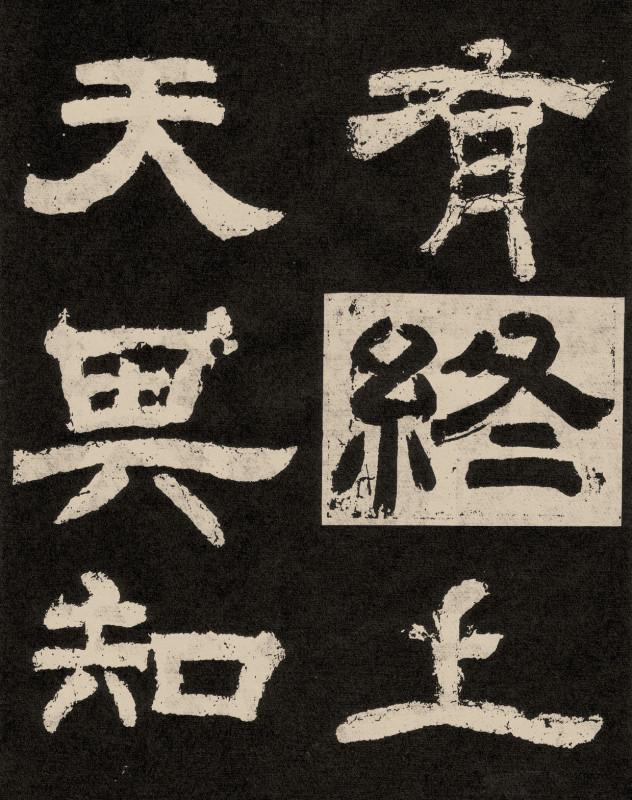 有終上
天知